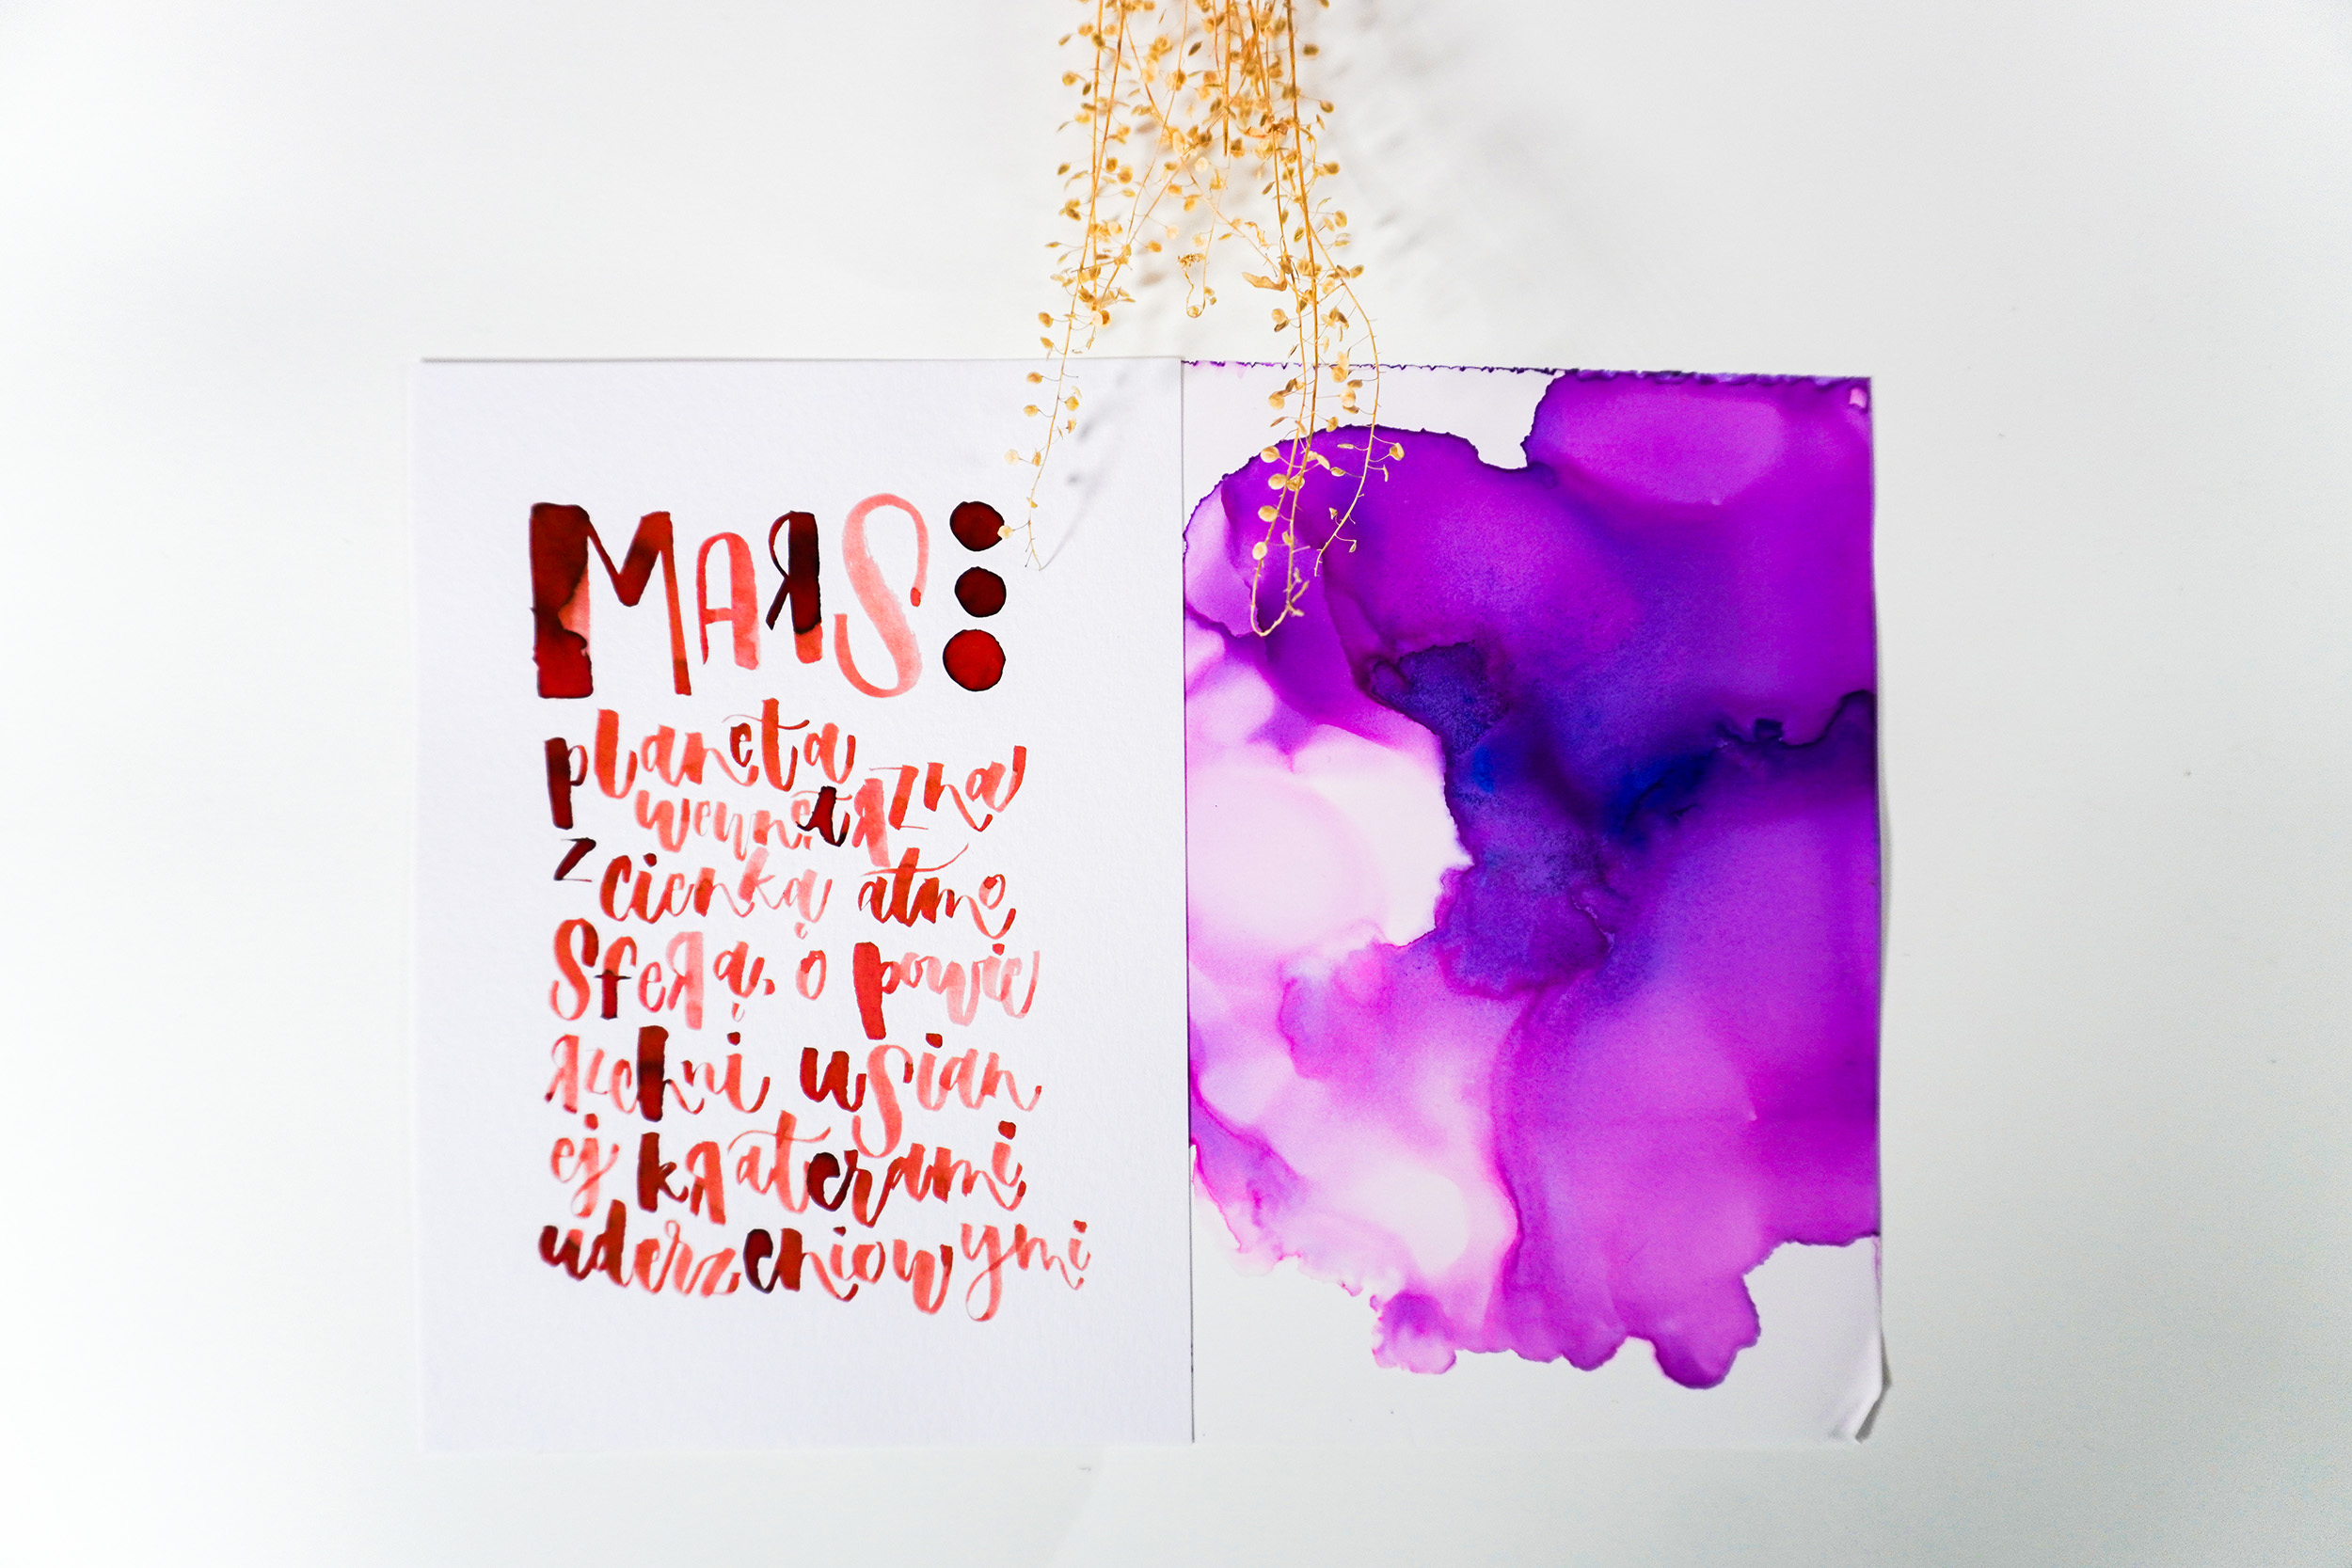 MARS
planeta
wewnętrzna
z cienką atmo
sferą, o powie
rzchni usian
ej kraterami
uderzeniowymi